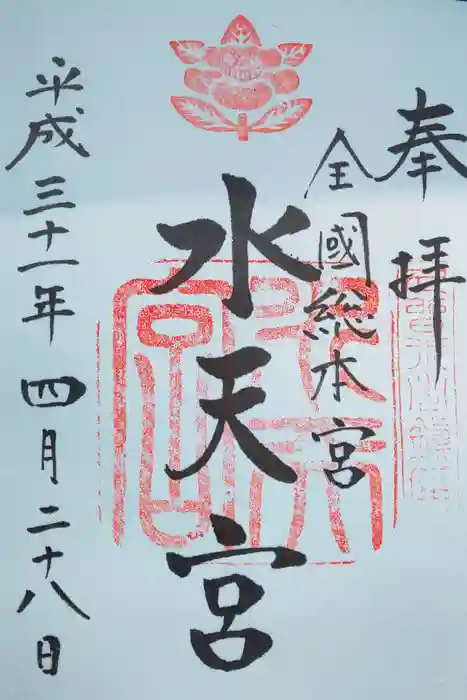 奉拝
全国総本宮
水天宮
平成三十一年四月二十八日